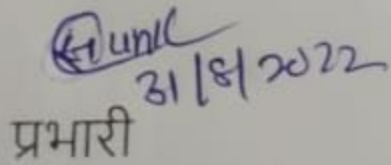 31/8/2022
प्रभारी